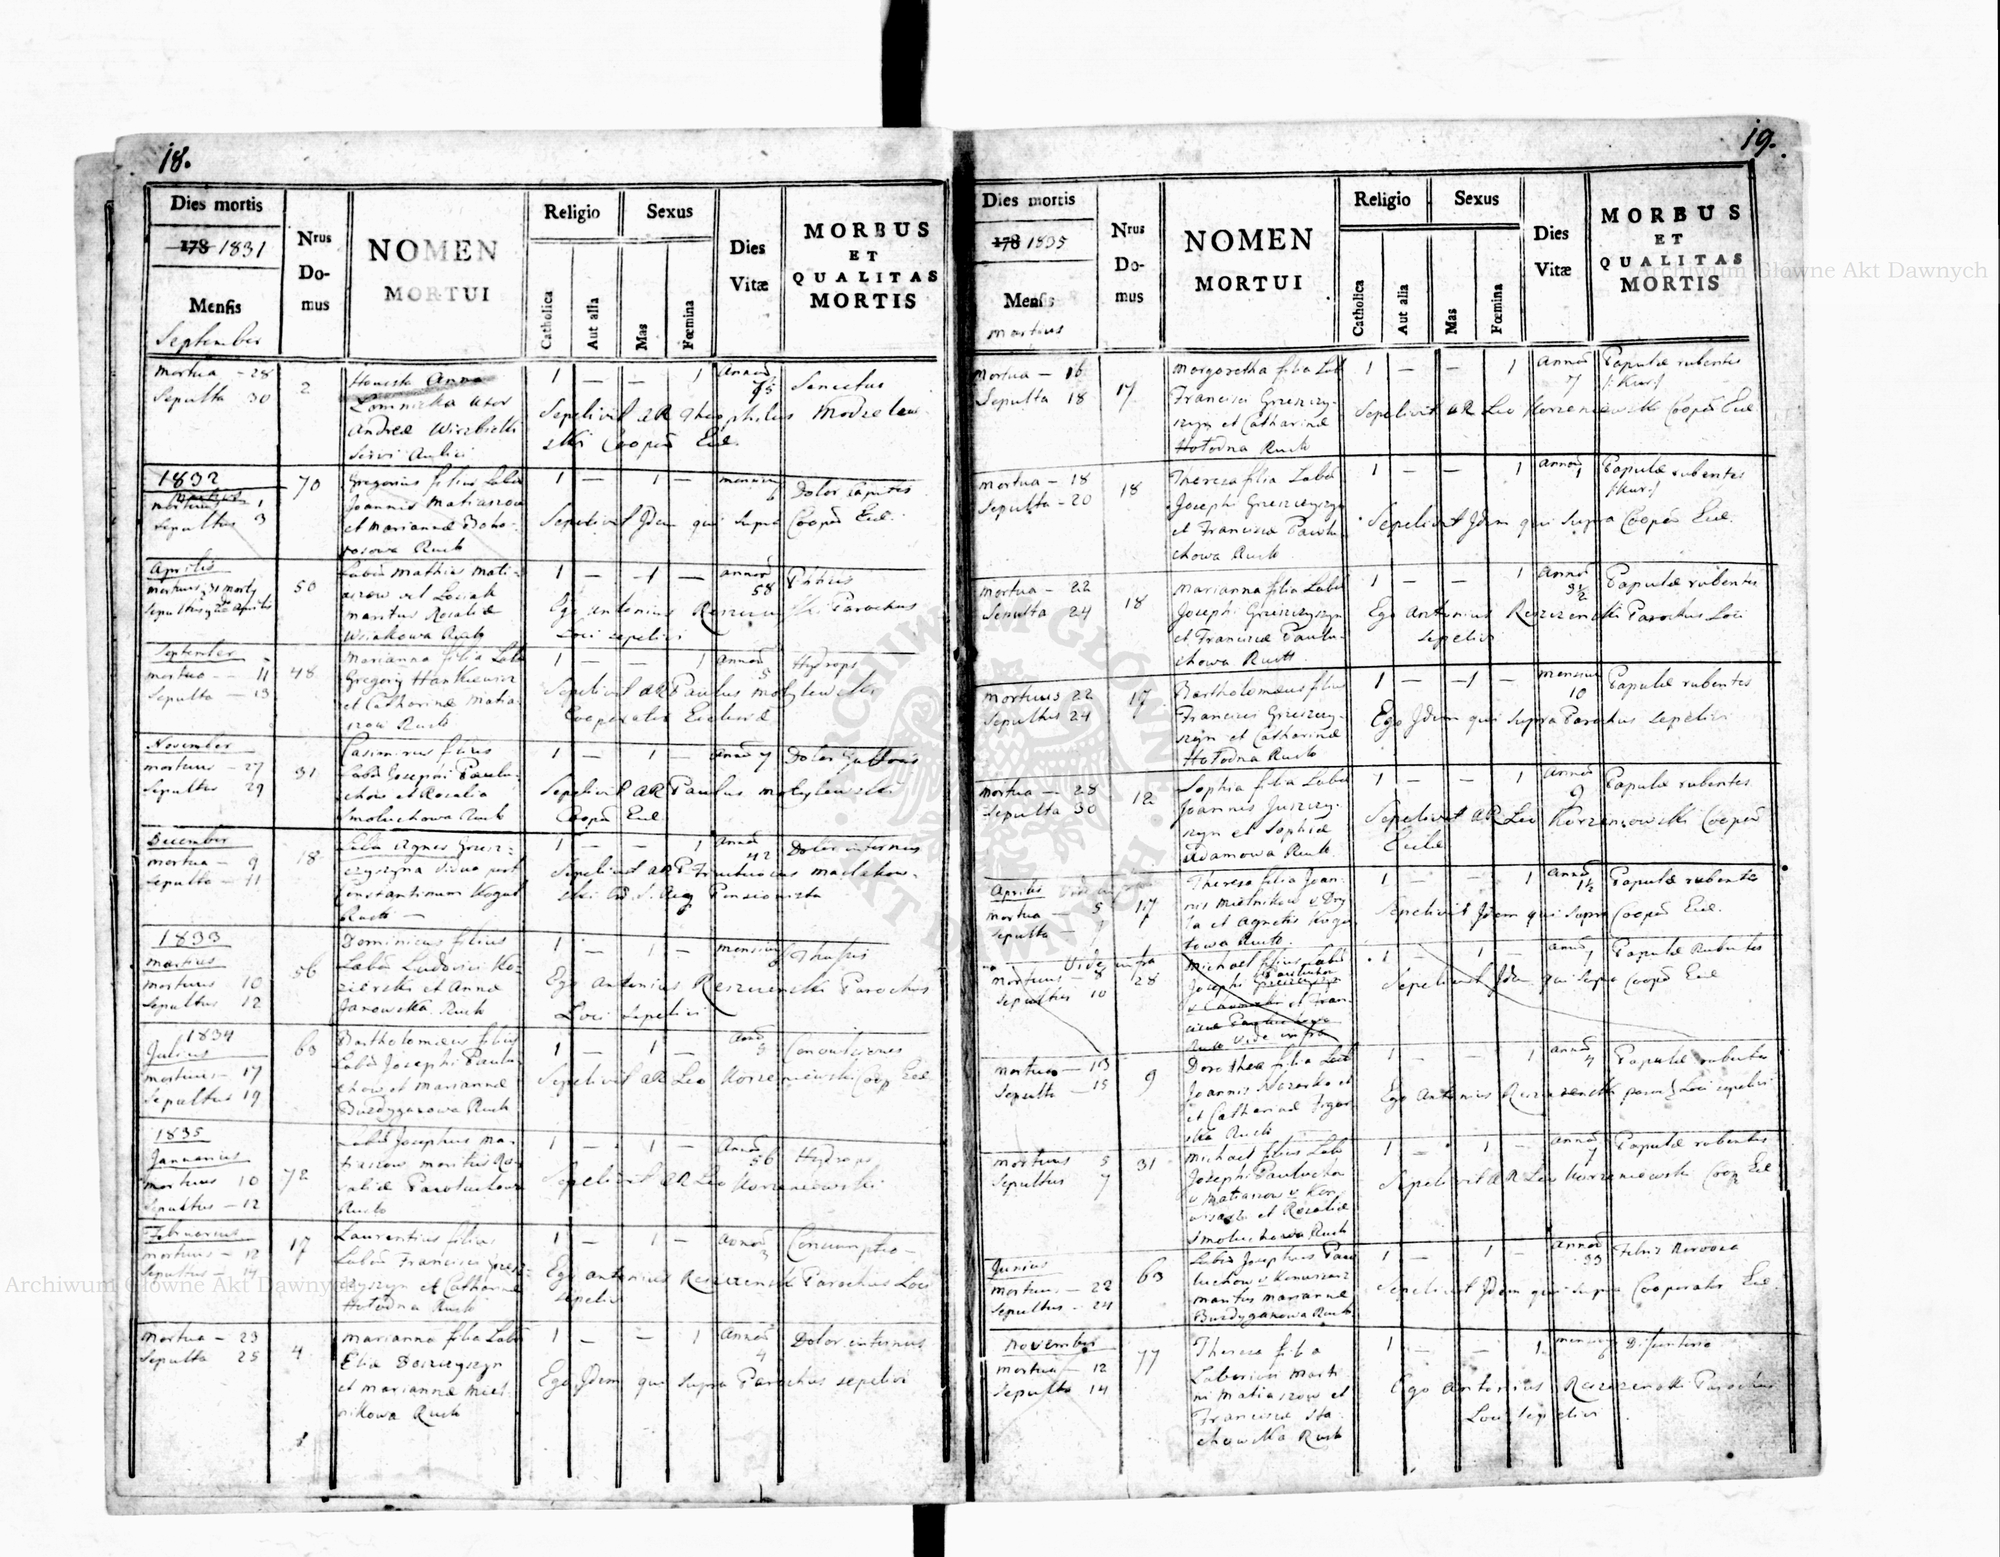 18.
Dies mortis
178 1831
Mensis
September
Nrus
Do-
mus
NOMEN
MORTUI
Religio
Catholica
Aut alia
Sexus
Mas
Fœmina
Dies
Vitæ
MORBUS
ET
QUALITAS
MORTIS
mortua - 28
Sepulta 30
2
Honesta Anna
Łomnicka uxor
Andreæ Wierzbicki
Servi Aulici
1 — — 1
Annor
75
Senectus
Sepelivit AR Theophilus Modzelew-
ski Cooper Ecl.
1832
Martius
mortuus 1
Sepultus 3
70
Gregorius filius Labor
Joannis Matiaszow
et Mariannæ Boho-
rosowa Ruth
1 — 1 —
mensium 6
Dolor Capitis
Sepelivit Idem qui Supra Cooper Ecl.
Aprilis
50
Labor Mathias Mati-
aszow
maritus Rosaliæ
Wsiakowa Ruth
1 — 1 —
annor
58
Phtisis
Ego Antonius Reszczenski Parochus
Loci sepelivi
September
mortua — 11
Sepulta — 13
48
Marianna filia Labor
Gregorij Hankiewicz
et Catharinæ Matia-
szow Ruth
1 — — 1
Annor
5
Hydrops
Sepelivit AR Paulus Motylewski
Cooperator Ecclesiæ
November
mortuus — 27
Sepultus 29
31
Casimirus filius
Labor Josephi Paulu-
chow et Rosalia
Smoluchowa Ruth
1 — 1 —
Annor 7
Dolor Gutturis
Sepelivit AR Paulus Motylewski
Cooper Ecl.
December
mortua — 9
Sepulta — 11
18
Labor Agnes Grzesz-
czyszyna vidua post
Constantinum Kogut
Ruth —
1 — — 1
Annor
42
Dolor internus
Sepelivit AR Fructuosus Mallakow-
ski Ord. S. Aug Pensionista
1833
Martius
mortuus 10
Sepultus 12
56
Dominicus filius
Labor Ludovici Ko-
zierski et Annæ
Janowska Ruth
1 — 1 —
mensium
Thussis
Ego Antonius Reszczenski Parochus
Loci sepelivi
1834
Julius
mortuus — 17
Sepultus 19
63
Bartholomæus filius
Labor Josephi Paulu-
chow et Mariannæ
Burdyganowa Ruth
1 — 1 —
Annor
3
Sepelivit AR Leo Korzeniewski Coop Ecl.
1835
Januarius
mortuus 10
Sepultus — 12
72
Labor Josephus Ma-
tiaszow maritus Ro-
saliæ Pawluchowa
Ruth
1 — 1 —
Annor
56
Hydrops
Sepelivit AR Leo Korzeniewski
Februarius
mortuus — 12
Sepultus — 14
17
Laurentius filius
Labor Francisci Grzesz-
czyszyn et Catharinæ
Hołodna Ruth
1 — 1 —
Annor
3
Consumptio —
Ego Antonius Reszczenski Parochus Loci
sepelivi
mortua — 23
Sepulta 25
4
Marianna filia Labor
Eliæ Doszczyszyn
et Mariannæ Miel-
nikowa Ruth
1 — — 1
Annor
4
Dolor internus
Ego Idem qui Supra Parochus sepelivi
19.
Dies mortis
178 1835
Mensis
Martius
Nrus
Do-
mus
NOMEN
MORTUI
Religio
Catholica
Aut alia
Sexus
Mas
Fœmina
Dies
Vitæ
MORBUS
ET
QUALITAS
MORTIS
mortua — 16
Sepulta 18
17
Margaretha filia Lab
Francisci Grzeszczy-
szyn et Catharinæ
Hołodna Ruth
1 — — 1
Annor
7
Papulæ rubentes
/:Kur:/
Sepelivit AR Leo Korzeniewski Cooper Ecl
mortua — 18
Sepulta — 20
18
Theresa filia Labor
Josephi Grzeszczyszyn
et Franciscæ Pawlu-
chowa Ruth
1 — — 1
Annor 1
Papulæ rubentes
/:Kur:/
Sepelivit Idem qui Supra Cooper Ecl.
mortua — 22
Sepulta 24
18
Marianna filia Labor
Josephi Grzeszczyszyn
et Franciscæ Paulu-
chowa Ruth
1 — — 1
Annor
3½
Papulæ rubentes
Ego Antonius Reszczenski Parochus Loci
sepelivi
mortuus 22
Sepultus 24
17
Bartholomæus filius
Francisci Grzeszczy-
szyn et Catharinæ
Hołodna Ruth
1 — 1 —
mensium
10
Papulæ rubentes
Ego Idem qui Supra Parochus sepelivi
mortua — 28
Sepulta 30
12
Sophia filia Labor
Joannis Juszczy-
szyn et Sophiæ
Adamowa Ruth
1 — — 1
Annor
9
Papulæ rubentes
Sepelivit AR Leo Korzeniowski Cooper
Eccle
Aprilis vide infra
mortua — 5
Sepulta — 7
17
Theresa filia Joan-
nis Mielnikow v Dry-
la et Agnetis Kogu-
towa Ruth.
1 — — 1
Annor
1½
Papulæ rubentes
Sepelivit Idem qui Supra Cooper Ecl.
Vide infra
mortuus — 8
Sepultus 10
28
Michael filius Labor
Josephi
Ruth vide infra
1 — 1 —
Annor
7
Papulæ Rubentes
Sepelivit Idem qui Supra Cooper Ecl
mortua — 13
Sepulta — 15
9
Dorothea filia Labor
Joannis
et Catharinæ
Ruth
1 — — 1
annor
4
Papulæ rubentes
Ego Antonius Reszczenski paroch Loci sepelivi
mortuus 5
Sepultus 7
31
Michael filius Labor
Josephi Pauluchow
v Matiaszow v
et Rosaliæ
Smoluchowa Ruth
1 — 1 —
annor
7
Papulæ rubentes
Sepelivit AR Leo Korzeniewski Coop Ecl.
Junius
mortuus — 22
Sepultus — 24
63
Labor Josephus Pau-
luchow
maritus Mariannæ
Burdyganowa Ruth
1 — 1 —
Annor
33
Febris Nervosa
Sepelivit Idem qui Supra Cooperator Ecl
November
mortua — 12
Sepulta 14
77
Theresa filia
Laboriosi Marti-
ni Matiaszow et
Franciscæ Sta-
chowska Ruth
1 — — 1
mensium 6
Disenteria
Ego Antonius Reszczenski Parochus
Loci sepelivi
Archiwum Główne Akt Dawnych
Archiwum Główne Akt Dawnych
ARCHIWUM GŁÓWNE AKT DAWNYCH